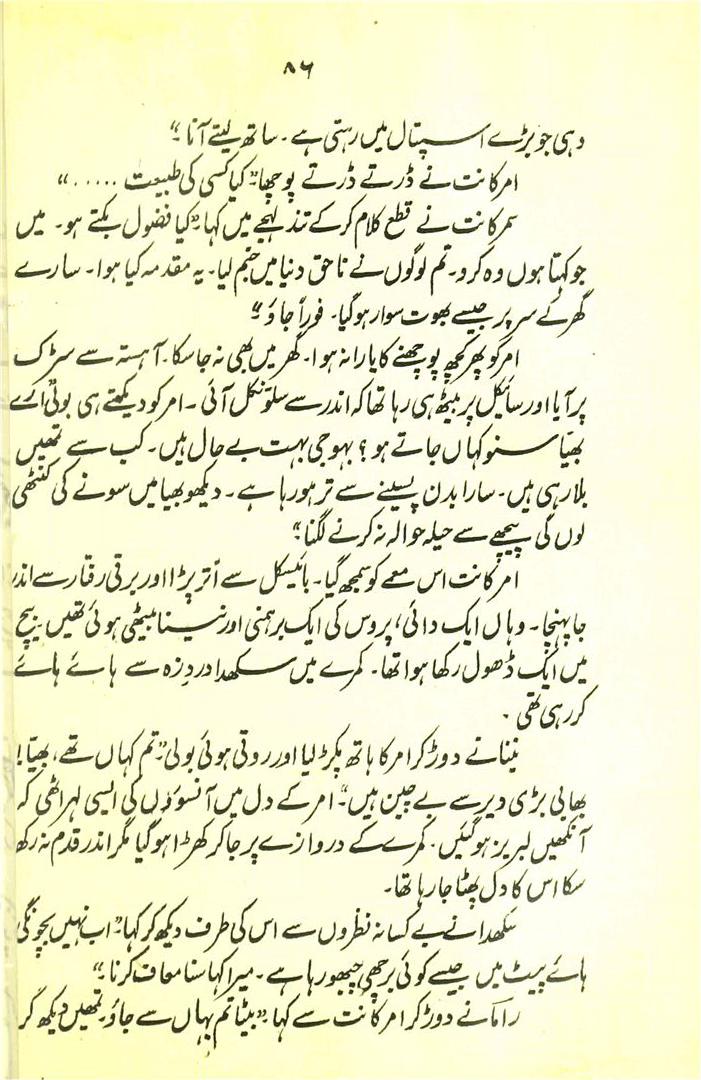 ۸۶
وہی جو بڑے اسپتال میں رہتی ہے۔ ساتھ لیتے آنا۔"
امرکانت نے ڈرتے ڈرتے پوچھا: "کیا کسی کی طبیعت ....."
سمرکانت نے قطع کلام کر کے تند لہجے میں کہا: "کیا فضول بکتے ہو۔ میں
جو کہتا ہوں وہ کرو۔ تم لوگوں نے ناحق دنیا میں جنم لیا۔ یہ مقدمہ کیا ہوا۔ سارے
گھر کے سر پر جیسے بھوت سوار ہو گیا۔ فوراً جاؤ۔"
امر کو پھر کچھ پوچھنے کا یارا نہ ہوا۔ گھر میں بھی نہ جا سکا۔ آہستہ سے سڑک
پر آیا اور سائیکل پر بیٹھ ہی رہا تھا کہ اندر سے سلو نکل آئی۔ امر کو دیکھتے ہی بولی "ارے
بھیا سنو کہاں جاتے ہو؟ بہوجی بہت بے حال ہیں۔ کب سے تمھیں
بلا رہی ہیں۔ سارا بدن پسینے سے تر ہو رہا ہے۔ دیکھو بھیا میں سونے کی کنٹھی
لوں گی پیچھے سے حیلہ حوالہ نہ کرنے لگنا۔"
امرکانت اس معمے کو سمجھ گیا۔ بائیسکل سے اتر پڑا اور برقی رفتار سے اندر
جا پہنچا۔ وہاں ایک دائی، پروس کی ایک برہمنی اور نینا بیٹھی ہوئی تھیں۔ بیچ
میں ایک ڈھول رکھا ہوا تھا۔ کمرے میں سکھدا دردِ زہ سے ہائے ہائے
کر رہی تھی۔
نینا نے دوڑ کر امر کا ہاتھ پکڑ لیا اور روتی ہوئی بولی "تم کہاں تھے، بھیّا!
بھابی بڑی دیر سے بے چین ہیں"۔ امر کے دل میں آنسوؤں کی ایسی لہر اٹھی کہ
آنکھیں لبریز ہو گئیں۔ کمرے کے دروازے پر جا کر کھڑا ہو گیا مگر اندر قدم نہ رکھ
سکا اس کا دل پھٹا جا رہا تھا۔
سکھدا نے بے کسانہ نظروں سے اس کی طرف دیکھ کر کہا۔ "اب نہیں بچونگی
ہائے پیٹ میں جیسے کوئی برچھی چبھو رہا ہے۔ میرا کہا سنا معاف کرنا۔"
راما نے دوڑ کر امرکانت سے کہا۔ "بیٹا تم یہاں سے جاؤ۔ تمھیں دیکھ کر